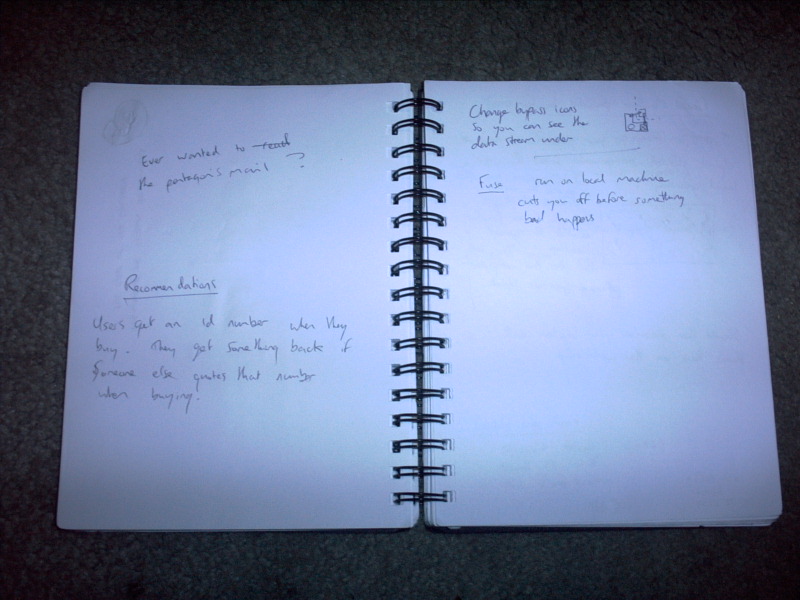 Ever wanted to read
the pentagon's mail ?
Recommendations
Users get an id number when they
buy. They get something back if
someone else quotes that number
when buying.
Change bypass icons
so you can see the
data stream under
Fuse run on local machine
cuts you off before something
bad happens